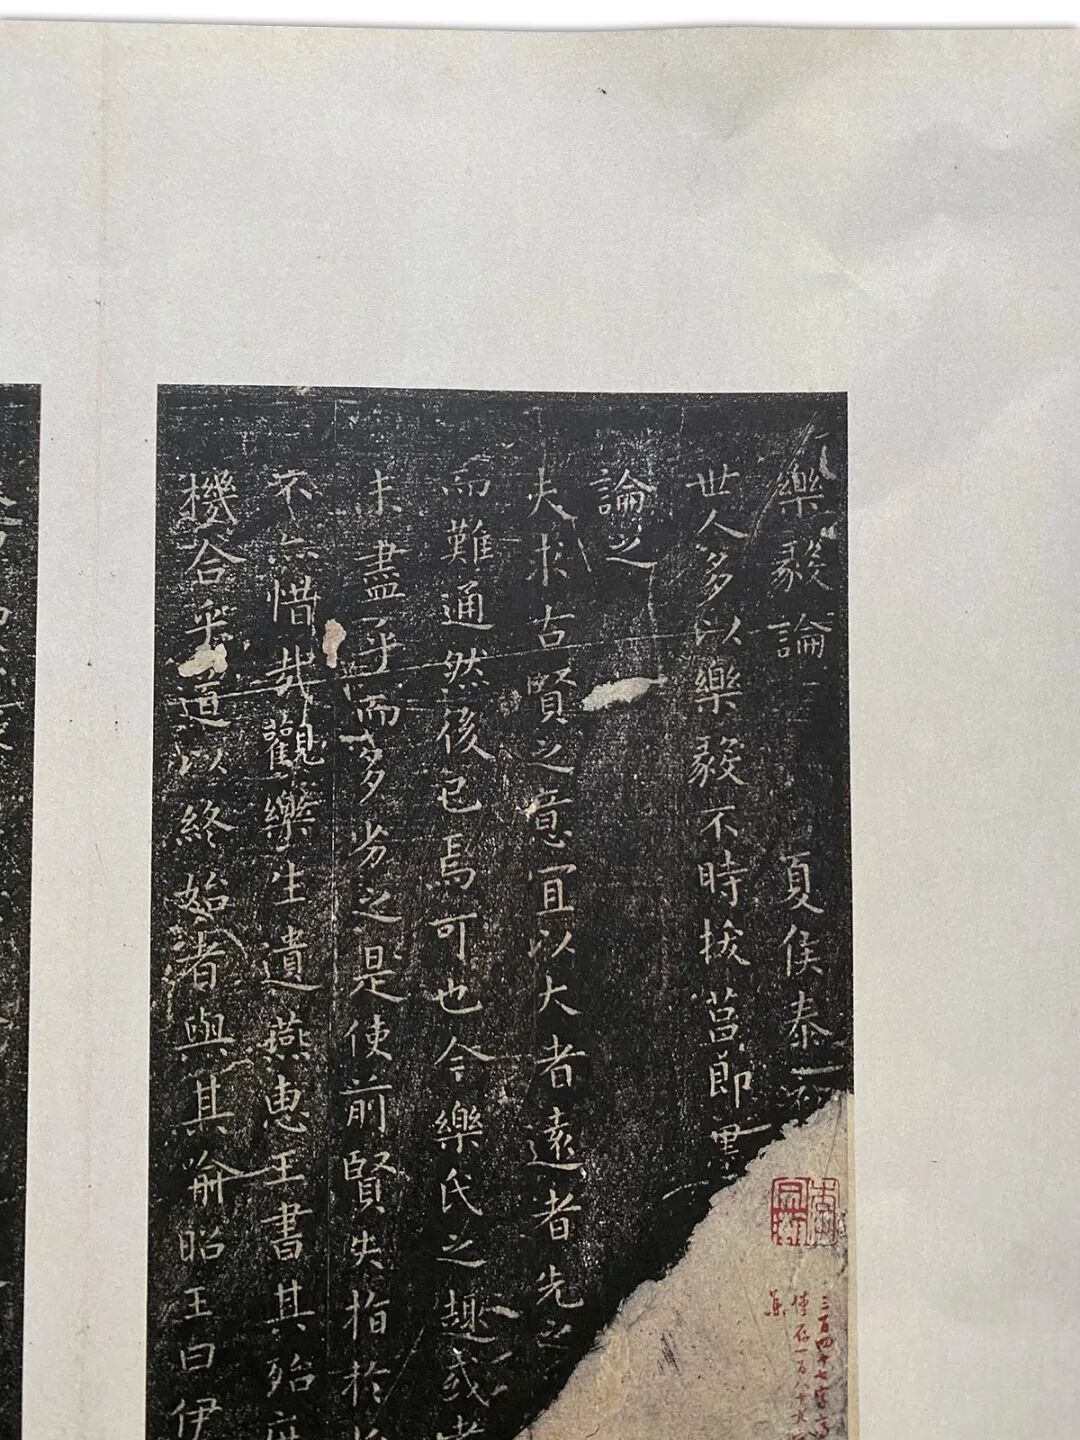 樂毅論 夏侯泰
世人多以樂毅不時拔莒即墨
論之
夫求古賢之意宜以大者遠者先之
而難通然後已焉可也今樂氏之趣或者
未盡乎而多劣之是使前賢失指於
不亦惜哉觀樂生遺燕惠王書其殆庶
機合乎道以終始者與其喻昭王曰伊
三百四十七字
僅存一百